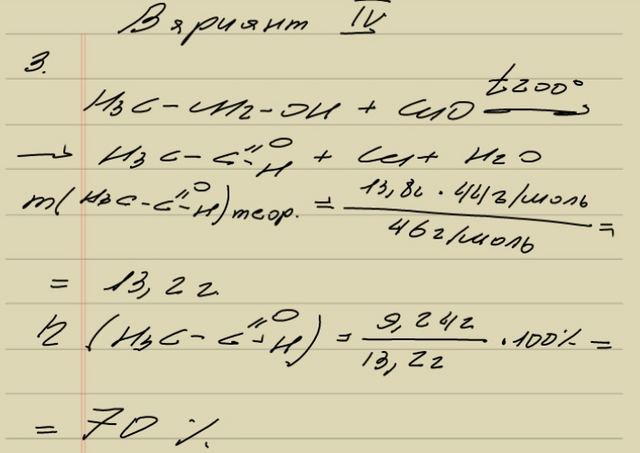 Вариант IV
3.
H3C-CH2-OH + CuO t200°→
→ H3C-C=O-H + Cu + H2O
m(H3C-C=O-H)теор. = 13,8г · 44г/моль / 46г/моль =
= 13,2г
η (H3C-C=O-H) = 9,24г / 13,2г · 100% =
= 70 %